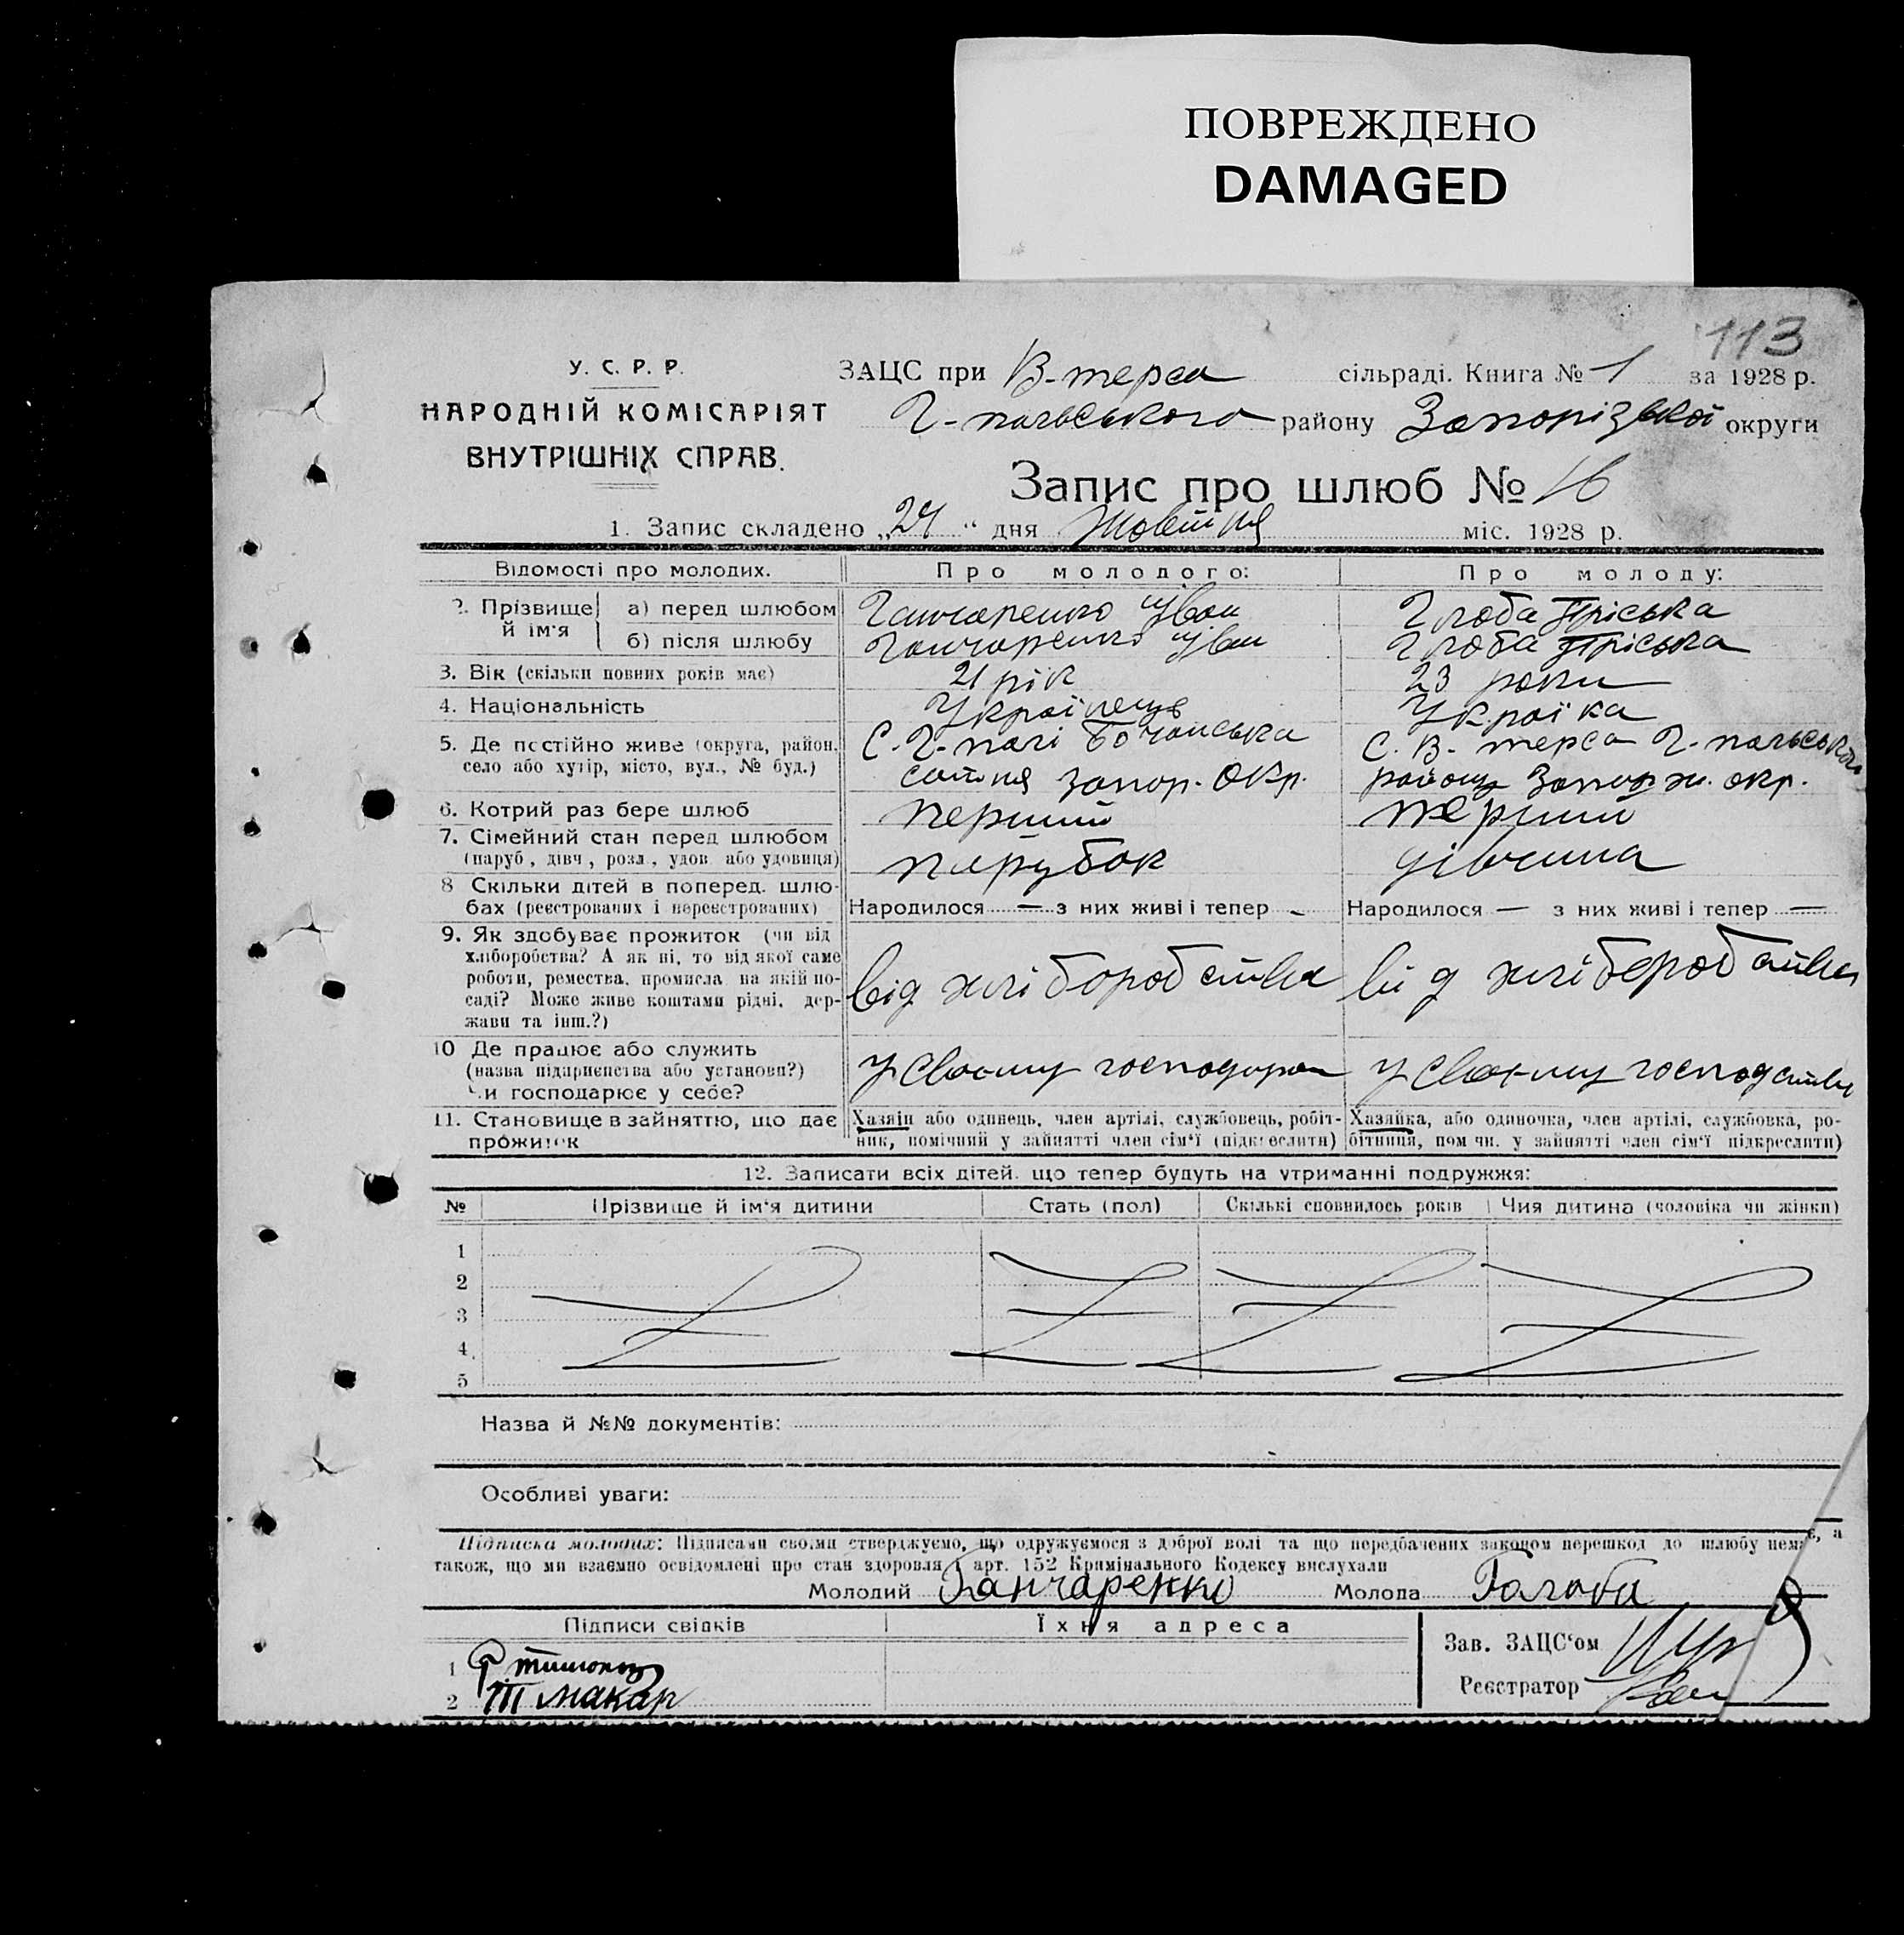 ПОВРЕЖДЕНО
DAMAGED
113
У. С. Р. Р.
НАРОДНІЙ КОМІСАРІЯТ
ВНУТРІШНІХ СПРАВ.
ЗАЦС при В-терса сільраді. Книга № 1 за 1928 р.
Г-пільського району Запорізької округи
Запис про шлюб № 16
1. Запис складено „24“ дня Жовтня міс. 1928 р.
Відомості про молодих. Про молодого: Про молоду:
2. Прізвище й ім'я а) перед шлюбом Ганчаренко Іван Глоба Пріська
б) після шлюбу Ганчаренко Іван Глоба Пріська
3. Вік (скільки повних років має) 21 рік 23 роки
4. Національність Українець Украї ка
5. Де постійно живе (округа, район, С. Г-полі Бочанська С. В-терса Г-пальського
село або хутір, місто, вул., № буд.) сотня Запор. Окр. району Запорж. окр.
6. Котрий раз бере шлюб перший перший
7. Сімейний стан перед шлюбом
(паруб., дівч., розл., удов. або удовиця) парубок дівчина
8 Скільки дітей в поперед. шлю-
бах (реєстрованих і нереєстрованих) Народилося — з них живі і тепер - Народилося — з них живі і тепер —
9. Як здобуває прожиток (чи від
хліборобства? А як ні, то від якої саме
роботи, ремества, промисла, на якій по- від хліборобства від хліборобства
саді? Може живе коштами рідні, дер-
жави та інш.?)
10 Де працює або служить
(назва підприємства або установи?) У своєму господарст У своєму господстві
Чи господарює у себе?
11. Становище в зайняттю, що дає Хазяїн або одинець, член артілі, службовець, робіт- Хазяйка, або одиночка, член артілі, службовка, ро-
прожиток ник, помічний у зайнятті член сім'ї (підкреслити) бітниця, помічн. у зайнятті член сім'ї підкреслити)
12. Записати всіх дітей, що тепер будуть на утриманні подружжя:
№ Прізвище й ім'я дитини Стать (пол) Скількі сповнилось років Чия дитина (чоловіка чи жінки)
1
2
3
4
5
Назва й №№ документів:
Особливі уваги:
Підписка молодих: Підписами своїми стверджуємо, що одружуємося з доброї волі та що передбачених законом перешкод до шлюбу немає, а
також, що ми взаємно освідомлені про стан здоровля і арт. 152 Крімінального Кодексу вислухали
Молодий Ганчаренко Молода Галоба
Підписи свідків Їхня адреса
Зав. ЗАЦС'ом
1
Реєстратор
2 Т Макар